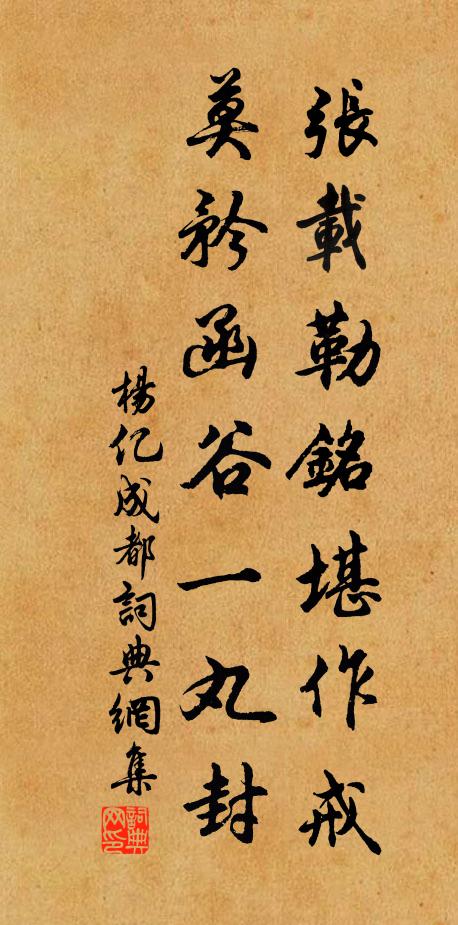 張載勒銘堪作戒
莫矜函谷一丸封
楊亿成都詞典網集
詞典网印